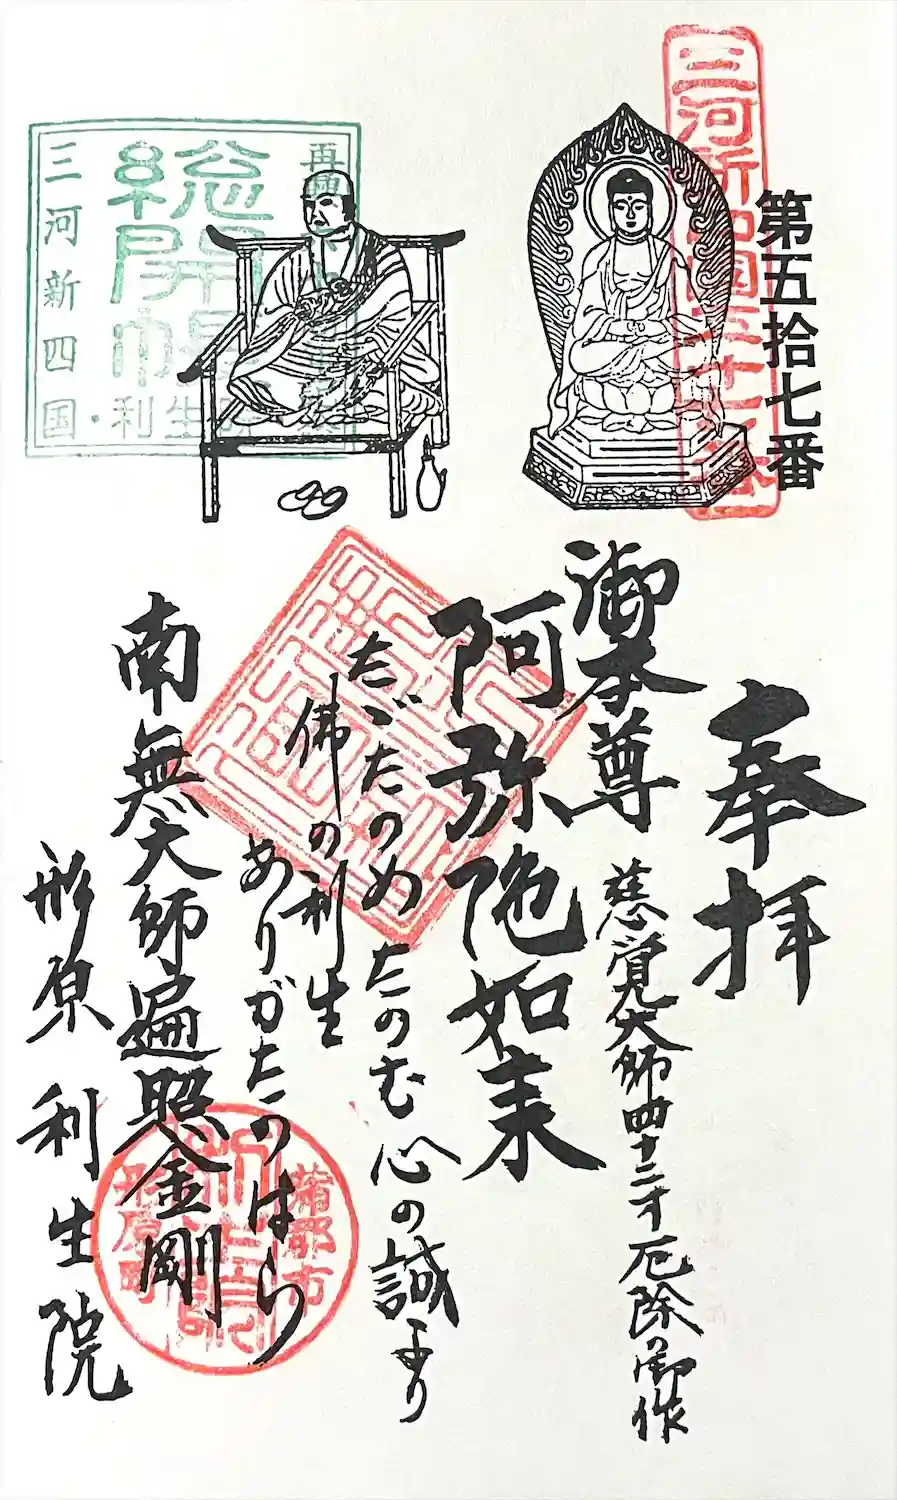 三河新四國五十七番
第五拾七番
奉拝
御本尊
慈覚大師四十二才厄除の御作
阿弥陀如来
たゞたのめたのむ心の誠より
佛の利生
ありがたのはら
南無大師遍照金剛
形原 利生院
総開帳
三河新四国・利生院
蒲郡市
形原町